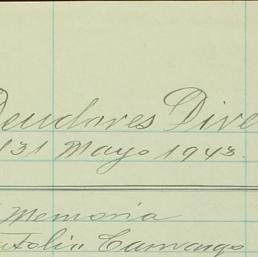 Deudores Dive
131 Mayo 1943.
Memoria
Camargo